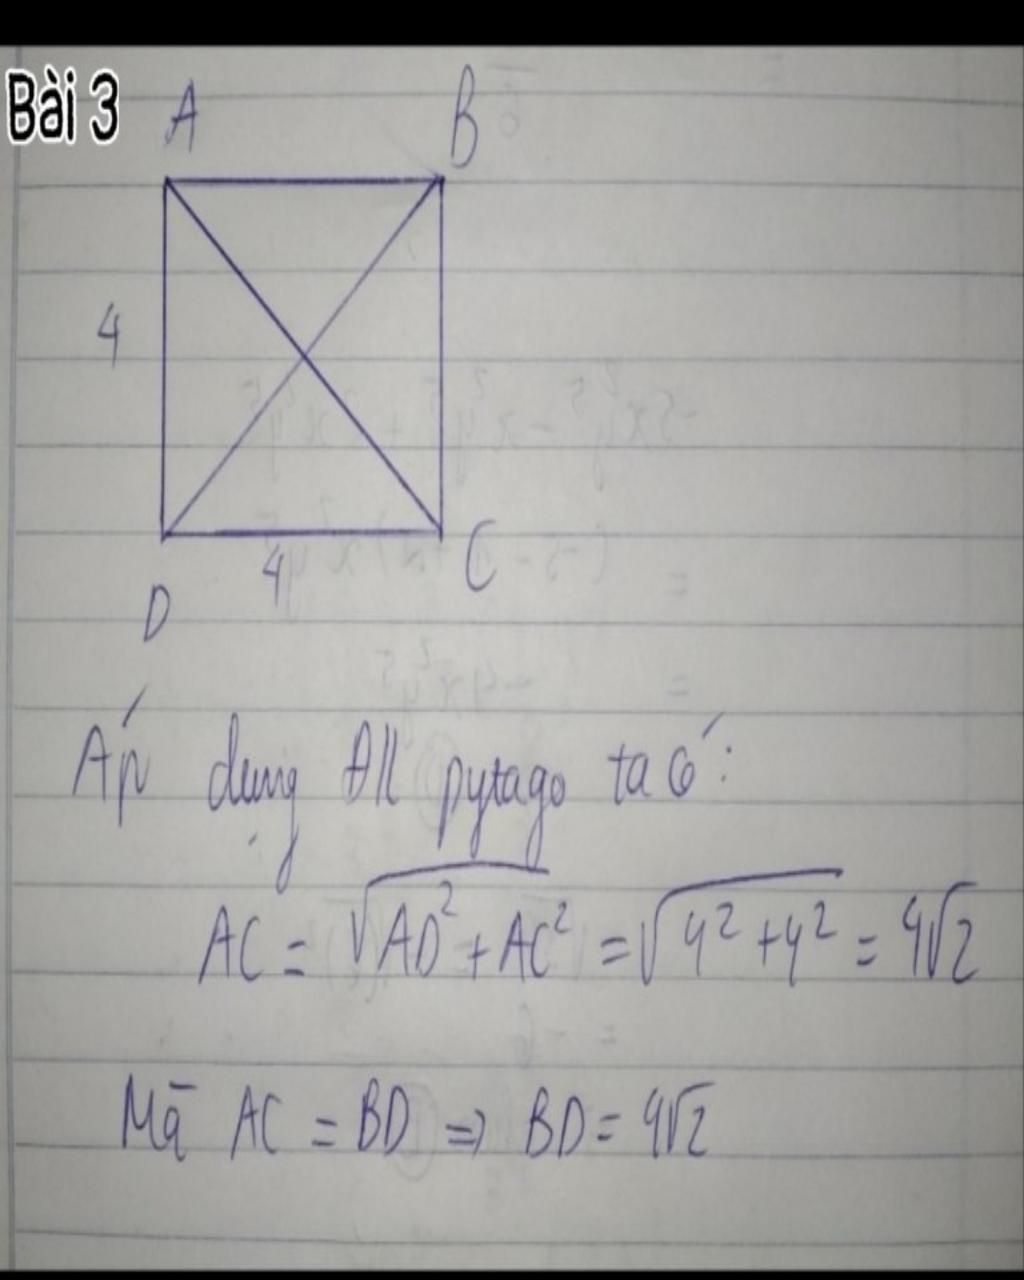 Bài 3
A B
4
4 C
D
Áp dụng ĐLL pytago ta có:
AC = √AD² + AC² = √4² + 4² = 4√2
Mà AC = BD ⇒ BD = 4√2